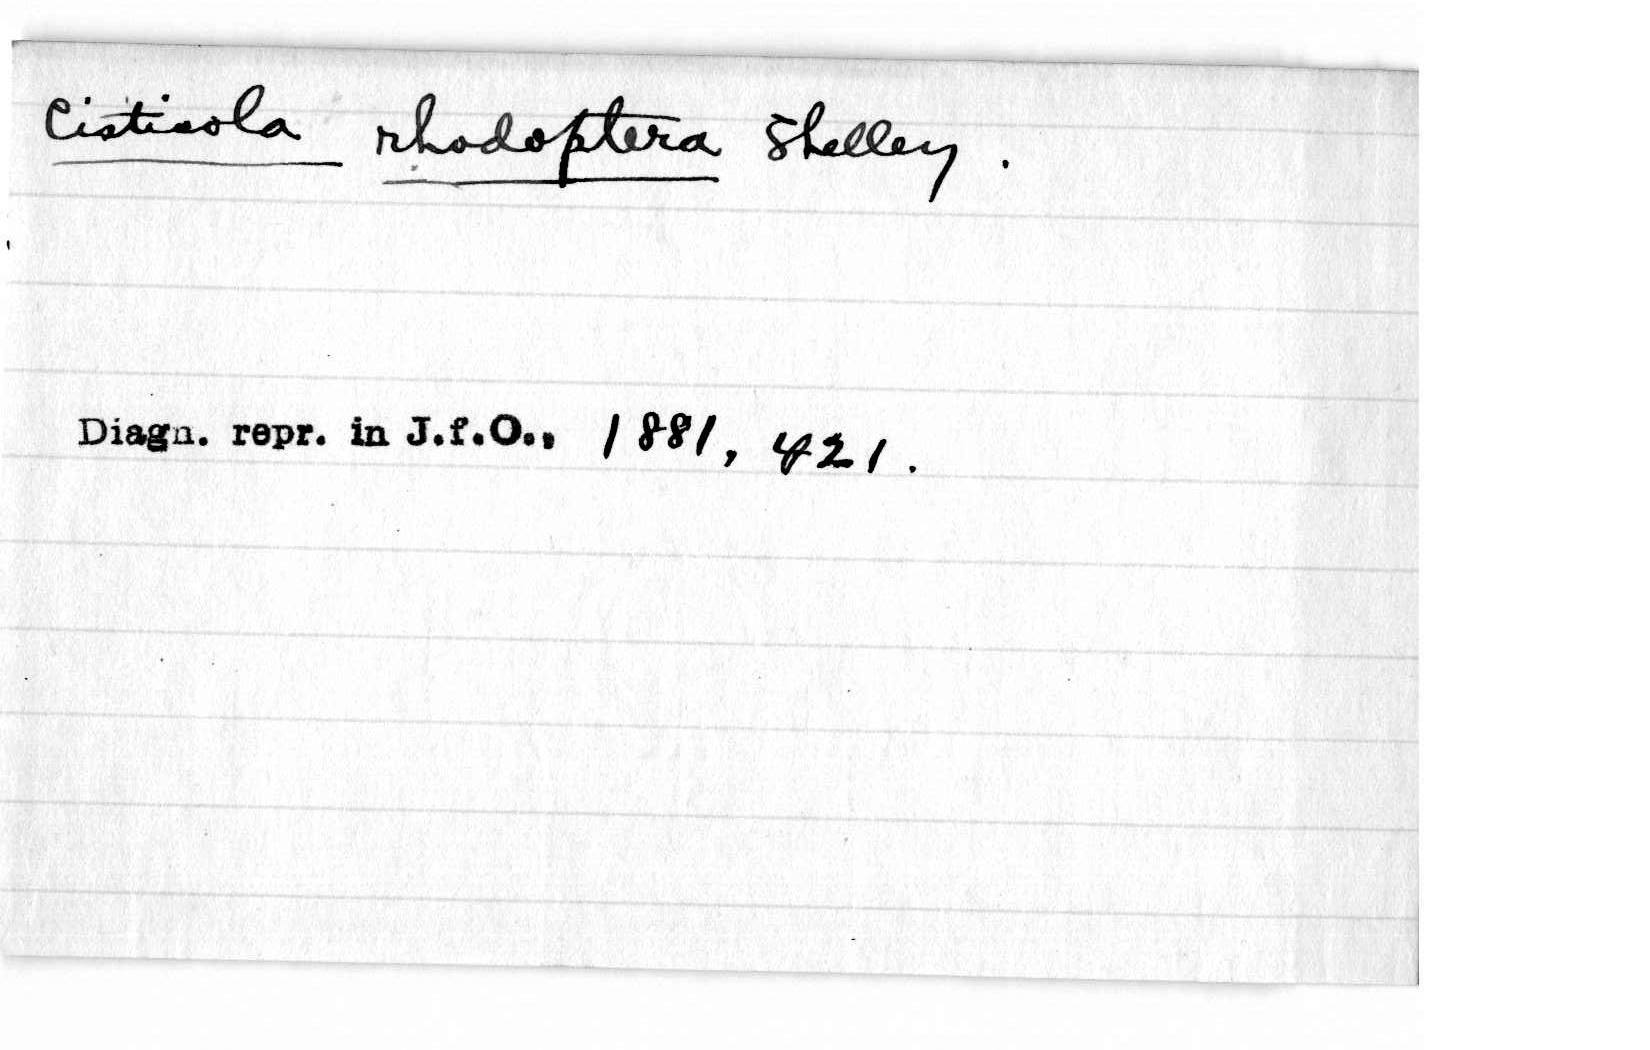 Cisticola rhodoptera Shelley.
Diagn. repr. in J.f.O., 1881, 421.